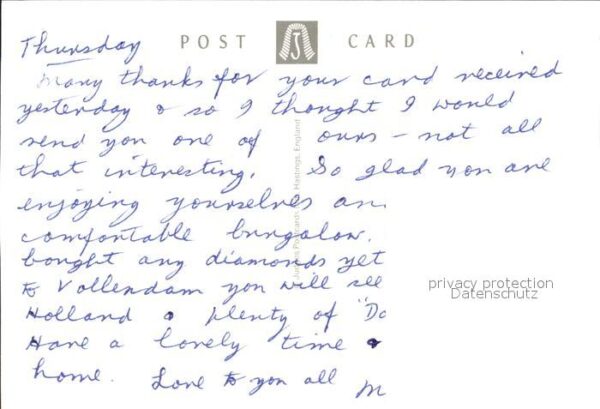 POST CARD
Thursday
Many thanks for your card received
yesterday & so I thought I would
send you one of ours - not all
that interesting. So glad you are
enjoying yourselves an
comfortable bungalow.
bought any diamonds yet
to Vollendam you will see
Holland & plenty of "Do
Have a lovely time &
home. Love to you all
M
Postcards Hastings, England
privacy protection
Datenschutz